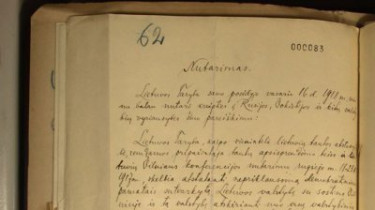 62
000083
Nutarimas.
Lietuvos Taryba savo posėdyje vasario 16 d. 1918 m. vie-
nu balsu nutarė kreiptis į Rusijos, Vokietijos ir kitų valsty-
bių vyriausybes šiuo pareiškimu:
Lietuvos Taryba, kaipo vienintelė lietuvių tautos atstovy-
bė, remdamos pripažintąja tautų apsisprendimo teise ir lie-
tuvių Vilniaus konferencijos nutarimu rugsėjo m. 18-23 d.
1917 m., skelbia atstatanti nepriklausomą demokratiniais
pamatais sutvarkytą Lietuvos valstybę su sostine Vil-
niuje ir tą valstybę atskirianti nuo visų valstybinių